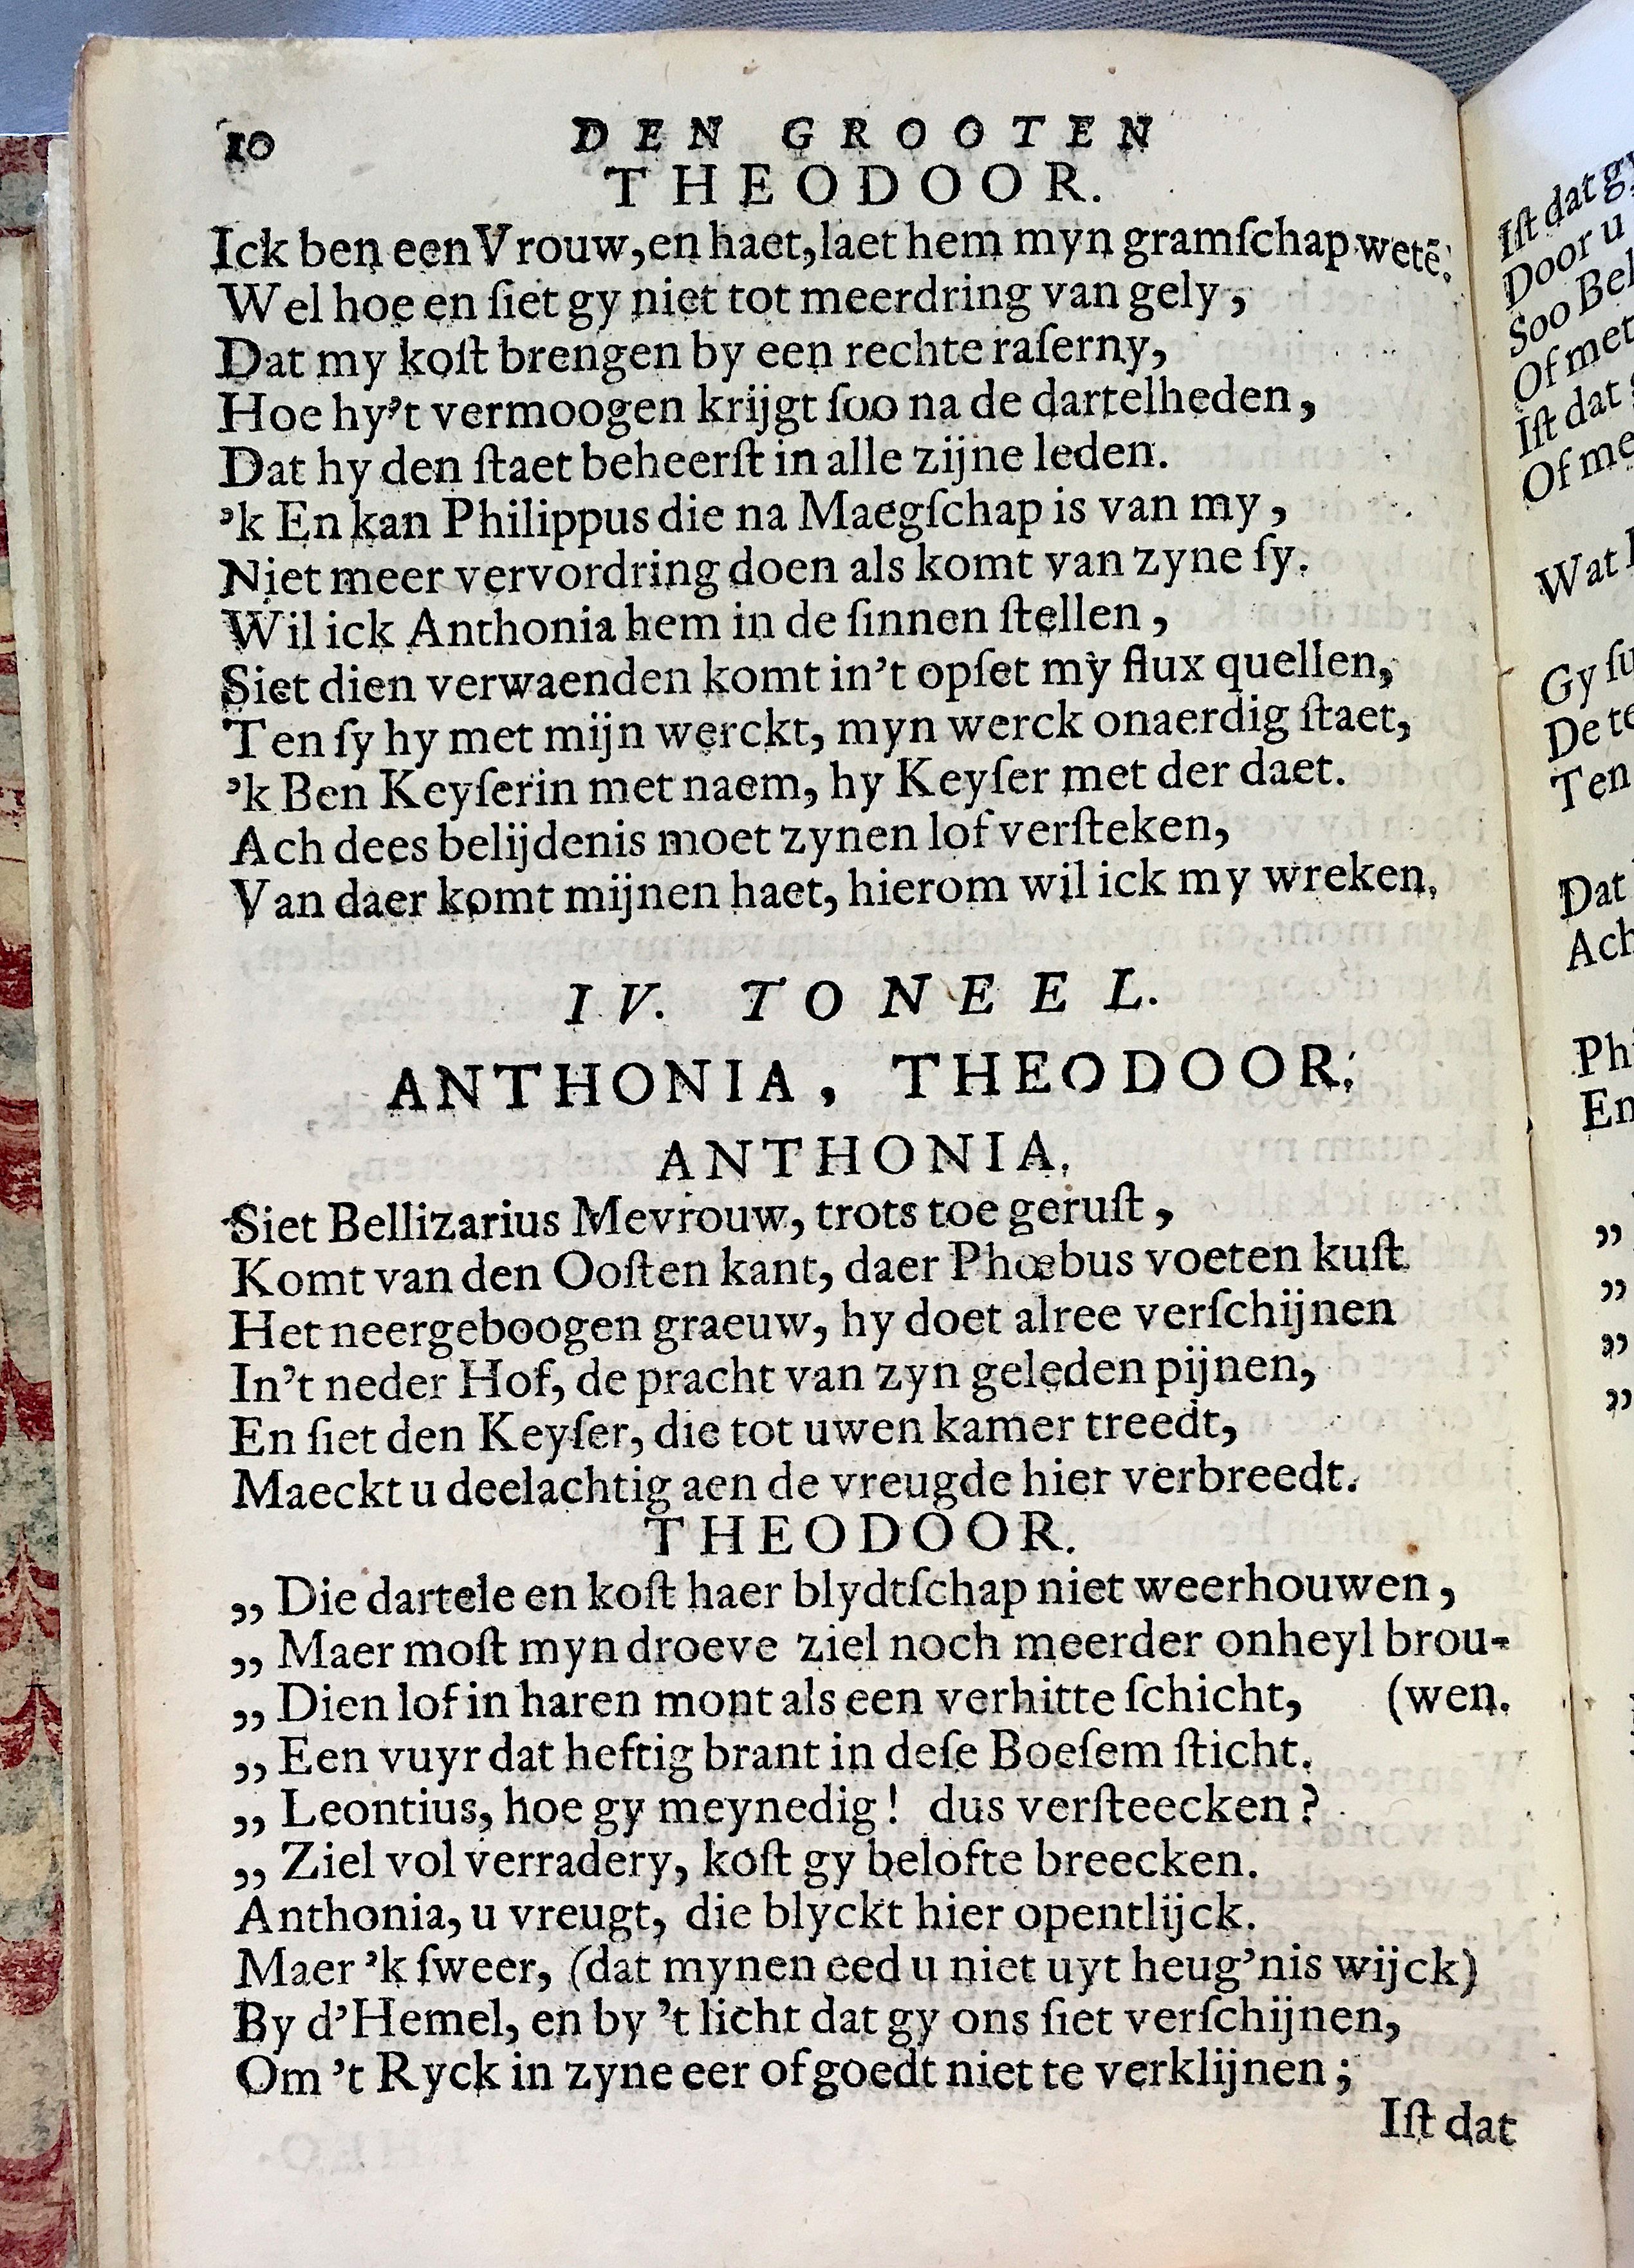 10 DEN GROOTEN
THEODOOR.
Ick ben een Vrouw, en haet, laet hem myn gramſchap wetē.
Wel hoe en ſiet gy niet tot meerdring van gely,
Dat my koſt brengen by een rechte raſerny,
Hoe hy't vermoogen krijgt ſoo na de dartelheden,
Dat hy den ſtaet beheerſt in alle zijne leden.
'k En kan Philippus die na Maegſchap is van my,
Niet meer vervordring doen als komt van zyne ſy.
Wil ick Anthonia hem in de ſinnen ſtellen,
Siet dien verwaenden komt in't opſet my flux quellen,
Ten ſy hy met mijn werckt, myn werck onaerdig ſtaet,
'k Ben Keyſerin met naem, hy Keyſer met der daet.
Ach dees belijdenis moet zynen lof verſteken,
Van daer komt mijnen haet, hierom wil ick my wreken.
IV. TONEEL.
ANTHONIA, THEODOOR.
ANTHONIA.
Siet Bellizarius Mevrouw, trots toe geruſt,
Komt van den Ooſten kant, daer Phœbus voeten kuſt
Het neergeboogen graeuw, hy doet alree verſchijnen
In't neder Hof, de pracht van zyn geleden pijnen,
En ſiet den Keyſer, die tot uwen kamer treedt,
Maeckt u deelachtig aen de vreugde hier verbreedt.
THEODOOR.
„ Die dartele en koſt haer blydtſchap niet weerhouwen,
„ Maer moſt myn droeve ziel noch meerder onheyl brou-
„ Dien lof in haren mont als een verhitte ſchicht, (wen.
„ Een vuyr dat heftig brant in deſe Boeſem ſticht.
„ Leontius, hoe gy meynedig! dus verſteecken?
„ Ziel vol verradery, koſt gy belofte breecken.
Anthonia, u vreugt, die blyckt hier opentlijck.
Maer 'k ſweer, (dat mynen eed u niet uyt heug'nis wijck)
By d'Hemel, en by 't licht dat gy ons ſiet verſchijnen,
Om 't Ryck in zyne eer of goedt niet te verklijnen;
Iſt dat
Iſt dat gy
Door u
Soo Bel
Of met
Iſt dat
Of me
Wat
Gy ſu
De te
Ten
Dat
Ach
Phi
En
„
„
„
„